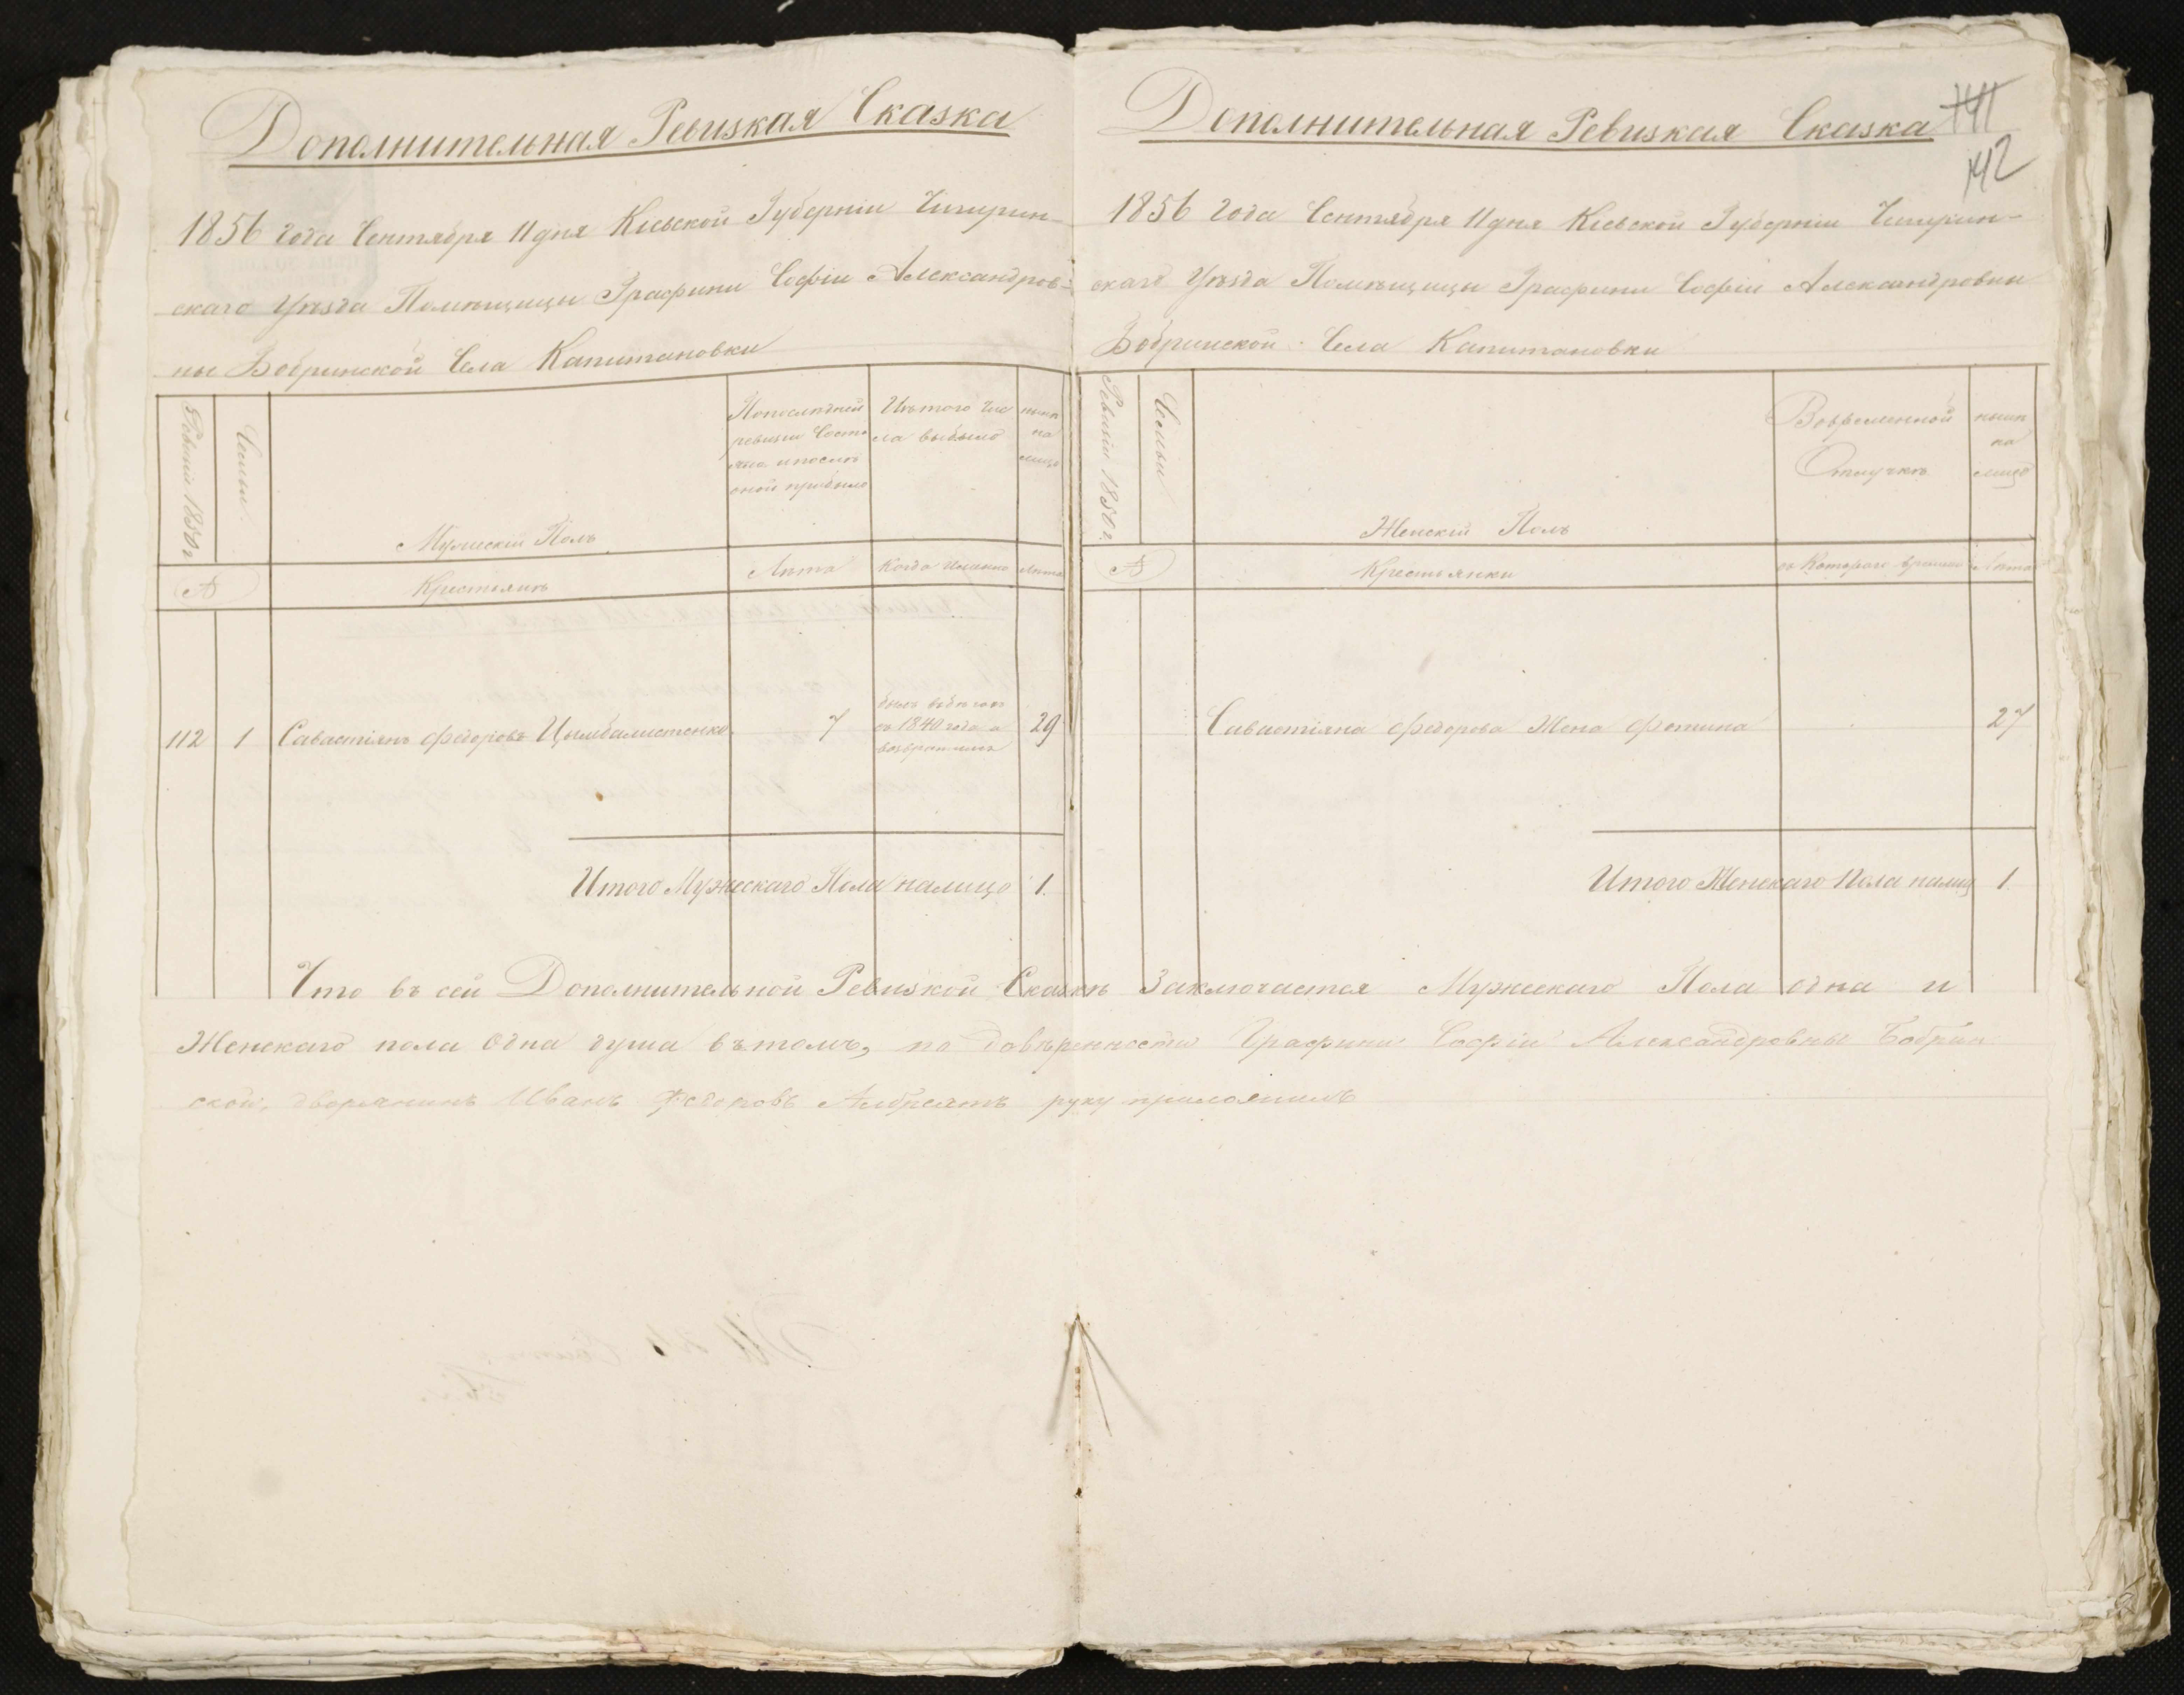 Дополнительная Ревизкая Сказка
1856 года Сентября 11 дня Кіевской Губерніи Чигирин-
скаго Уѣзда Помѣщицы Графини Софіи Александров-
ны Бобринской Села Капитановки
Ревизіи 1850 г.
Семьи
Мужескій Полъ
Попослѣдней
ревизіи Состо
яло и послѣ
оной прибыло
Изъ того Чис
ла выбыло
нынѣ
на
лицо
№
Крестьянъ
Лѣта
Когда Именно
Лѣта
112 1 Савастіянъ Федоровъ Цымбалистенко 7
былъ въ бѣгахъ
съ 1840 года а
возвратился
29
Итого Мужескаго Пола налицо 1.
Дополнительная Ревизкая Сказка
141
142
1856 года Сентября 11 дня Кіевской Губерніи Чигирин-
скаго Уѣзда Помѣщицы Графини Софіи Александровны
Бобринской Села Капитановки
Ревизіи 1850 г.
Семьи
Женскій Полъ
Вовременной
Отлучкѣ
нынѣ
на
лицо
№
Крестьянки
съ Котораго времени
Лѣта
Савастіяна Федорова Жена Фотина 27
Итого Женскаго Пола налиц 1.
Что въ сей Дополнительной Ревизкой Сказкѣ Заключается Мужескаго Пола одна и
Женскаго пола Одна душа въ томъ, по довѣренности Графини Софіи Александровны Бобрин
ской, дворянинъ Иванъ Федоровъ руку приложилъ